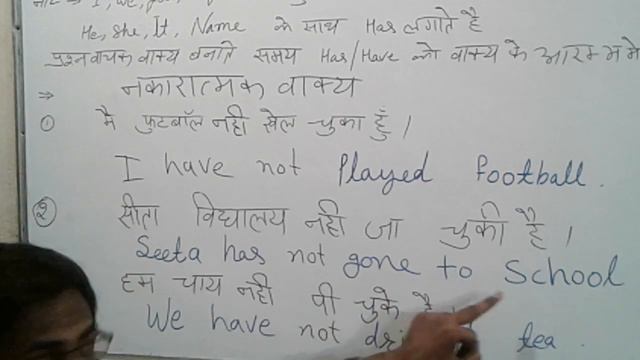 He, She, It, Name के साथ Has लगाते है
प्रश्नवाचक वाक्य बनाते समय Has/Have को वाक्य के आरम्भ मे
⇒ नकारात्मक वाक्य
① मै फुटबॉल नही खेल चुका हूँ ।
I have not Played football .
② सीता विद्यालय नही जा चुकी है ।
Seeta has not gone to School
हम चाय नही पी चुके है ।
We have not tea .